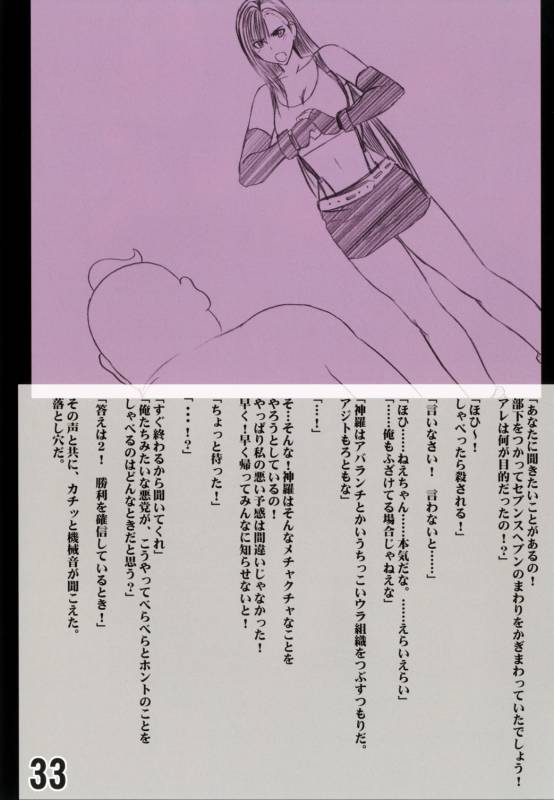 「あなたに聞きたいことがあるの！
部下をつかってセブンスヘブンのまわりをかぎまわっていたでしょう！
アレは何が目的だったの！？」
「ほひ～！
しゃべったら殺される！
「言いなさい！　言わないと……」
「ほひ……ねえちゃん……本気だな。……えらいえらい」
「……俺もふざけてる場合じゃねえな」
「神羅はアバランチとかいうちっこいウラ組織をつぶすつもりだ。
アジトもろともな」
「…！」
そ…そんな！神羅はそんなメチャクチャなことを
やろうとしているの！
やっぱり私の悪い予感は間違いじゃなかった！
早く！早く帰ってみんなに知らせないと！
「ちょっと待った！」
「・・・！？」
「すぐ終わるから聞いてくれ」
「俺たちみたいな悪党が、こうやってべらべらとホントのことを
しゃべるのはどんなときだと思う？」
「答えは2！　勝利を確信しているとき！」
その声と共に、カチッと機械音が聞こえた。
落とし穴だ。
33